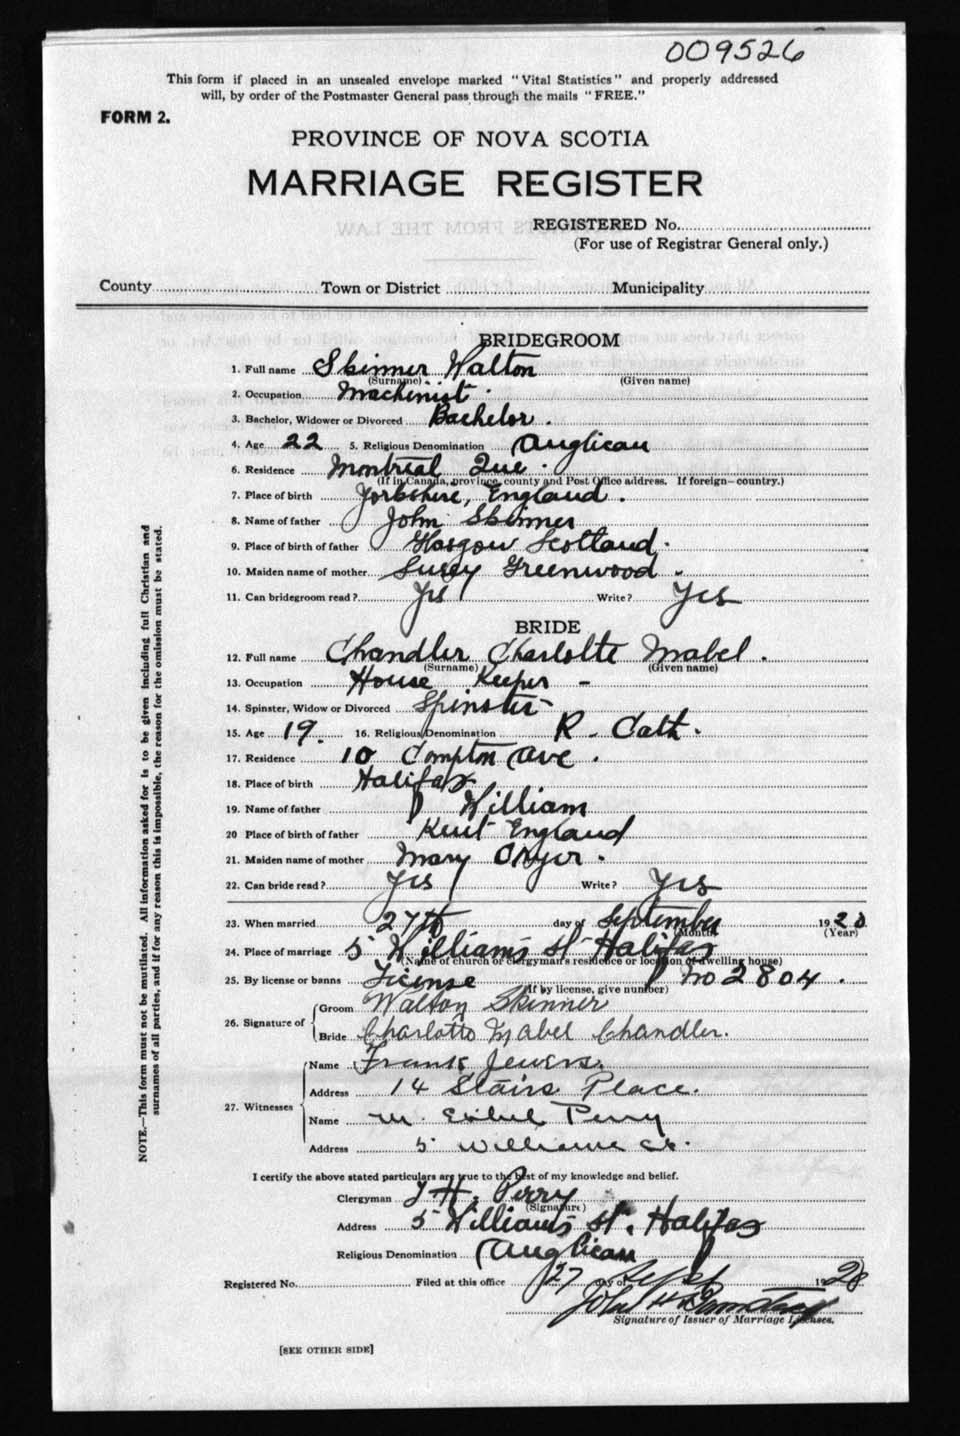 009526
This form if placed in an unsealed envelope marked "Vital Statistics" and properly addressed
will, by order of the Postmaster General pass through the mails "FREE."
FORM 2.
PROVINCE OF NOVA SCOTIA
MARRIAGE REGISTER
REGISTERED No.
(For use of Registrar General only.)
County Town or District Municipality
BRIDEGROOM
1. Full name Skinner Walton
(Surname) (Given name)
2. Occupation Machinist
3. Bachelor, Widower or Divorced Bachelor.
4. Age 22 5. Religious Denomination Anglican
6. Residence Montreal Que.
(If in Canada, province, county and Post Office address. If foreign—country.)
7. Place of birth Yorkshire, England.
8. Name of father John Skinner
9. Place of birth of father Glasgow Scotland.
10. Maiden name of mother Susey Greenwood.
11. Can bridegroom read? Yes Write? Yes
BRIDE
12. Full name Chandler Charlotte Mabel.
(Surname) (Given name)
13. Occupation House Keeper -
14. Spinster, Widow or Divorced Spinster
15. Age 19. 16. Religious Denomination R. Cath.
17. Residence 10 Compton Ave.
18. Place of birth Halifax
19. Name of father William
20 Place of birth of father Kent England
21. Maiden name of mother Mary
22. Can bride read? Yes Write? Yes
23. When married 27th day of September 1928
(Month) (Year)
24. Place of marriage 5 Williams St Halifax
(Name of church or clergyman's residence or location of dwelling house)
25. By license or banns License No 2804.
(If by license, give number)
26. Signature of Groom Walton Skinner
Bride Charlotte Mabel Chandler.
27. Witnesses Name Frank Jewers.
Address 14 Stairs Place.
Name M. Ethel Perry
Address 5 Williams St.
I certify the above stated particulars are true to the best of my knowledge and belief.
Clergyman T H. Perry
(Signature)
Address 5 Williams St. Halifax
Religious Denomination Anglican
Registered No. Filed at this office 27 day of Sept 1928
John H
Signature of Issuer of Marriage Licenses.
[SEE OTHER SIDE]
NOTE.—This form must not be mutilated. All information asked for is to be given including full Christian and
surnames of all parties, and if for any reason this is impossible, the reason for the omission must be stated.